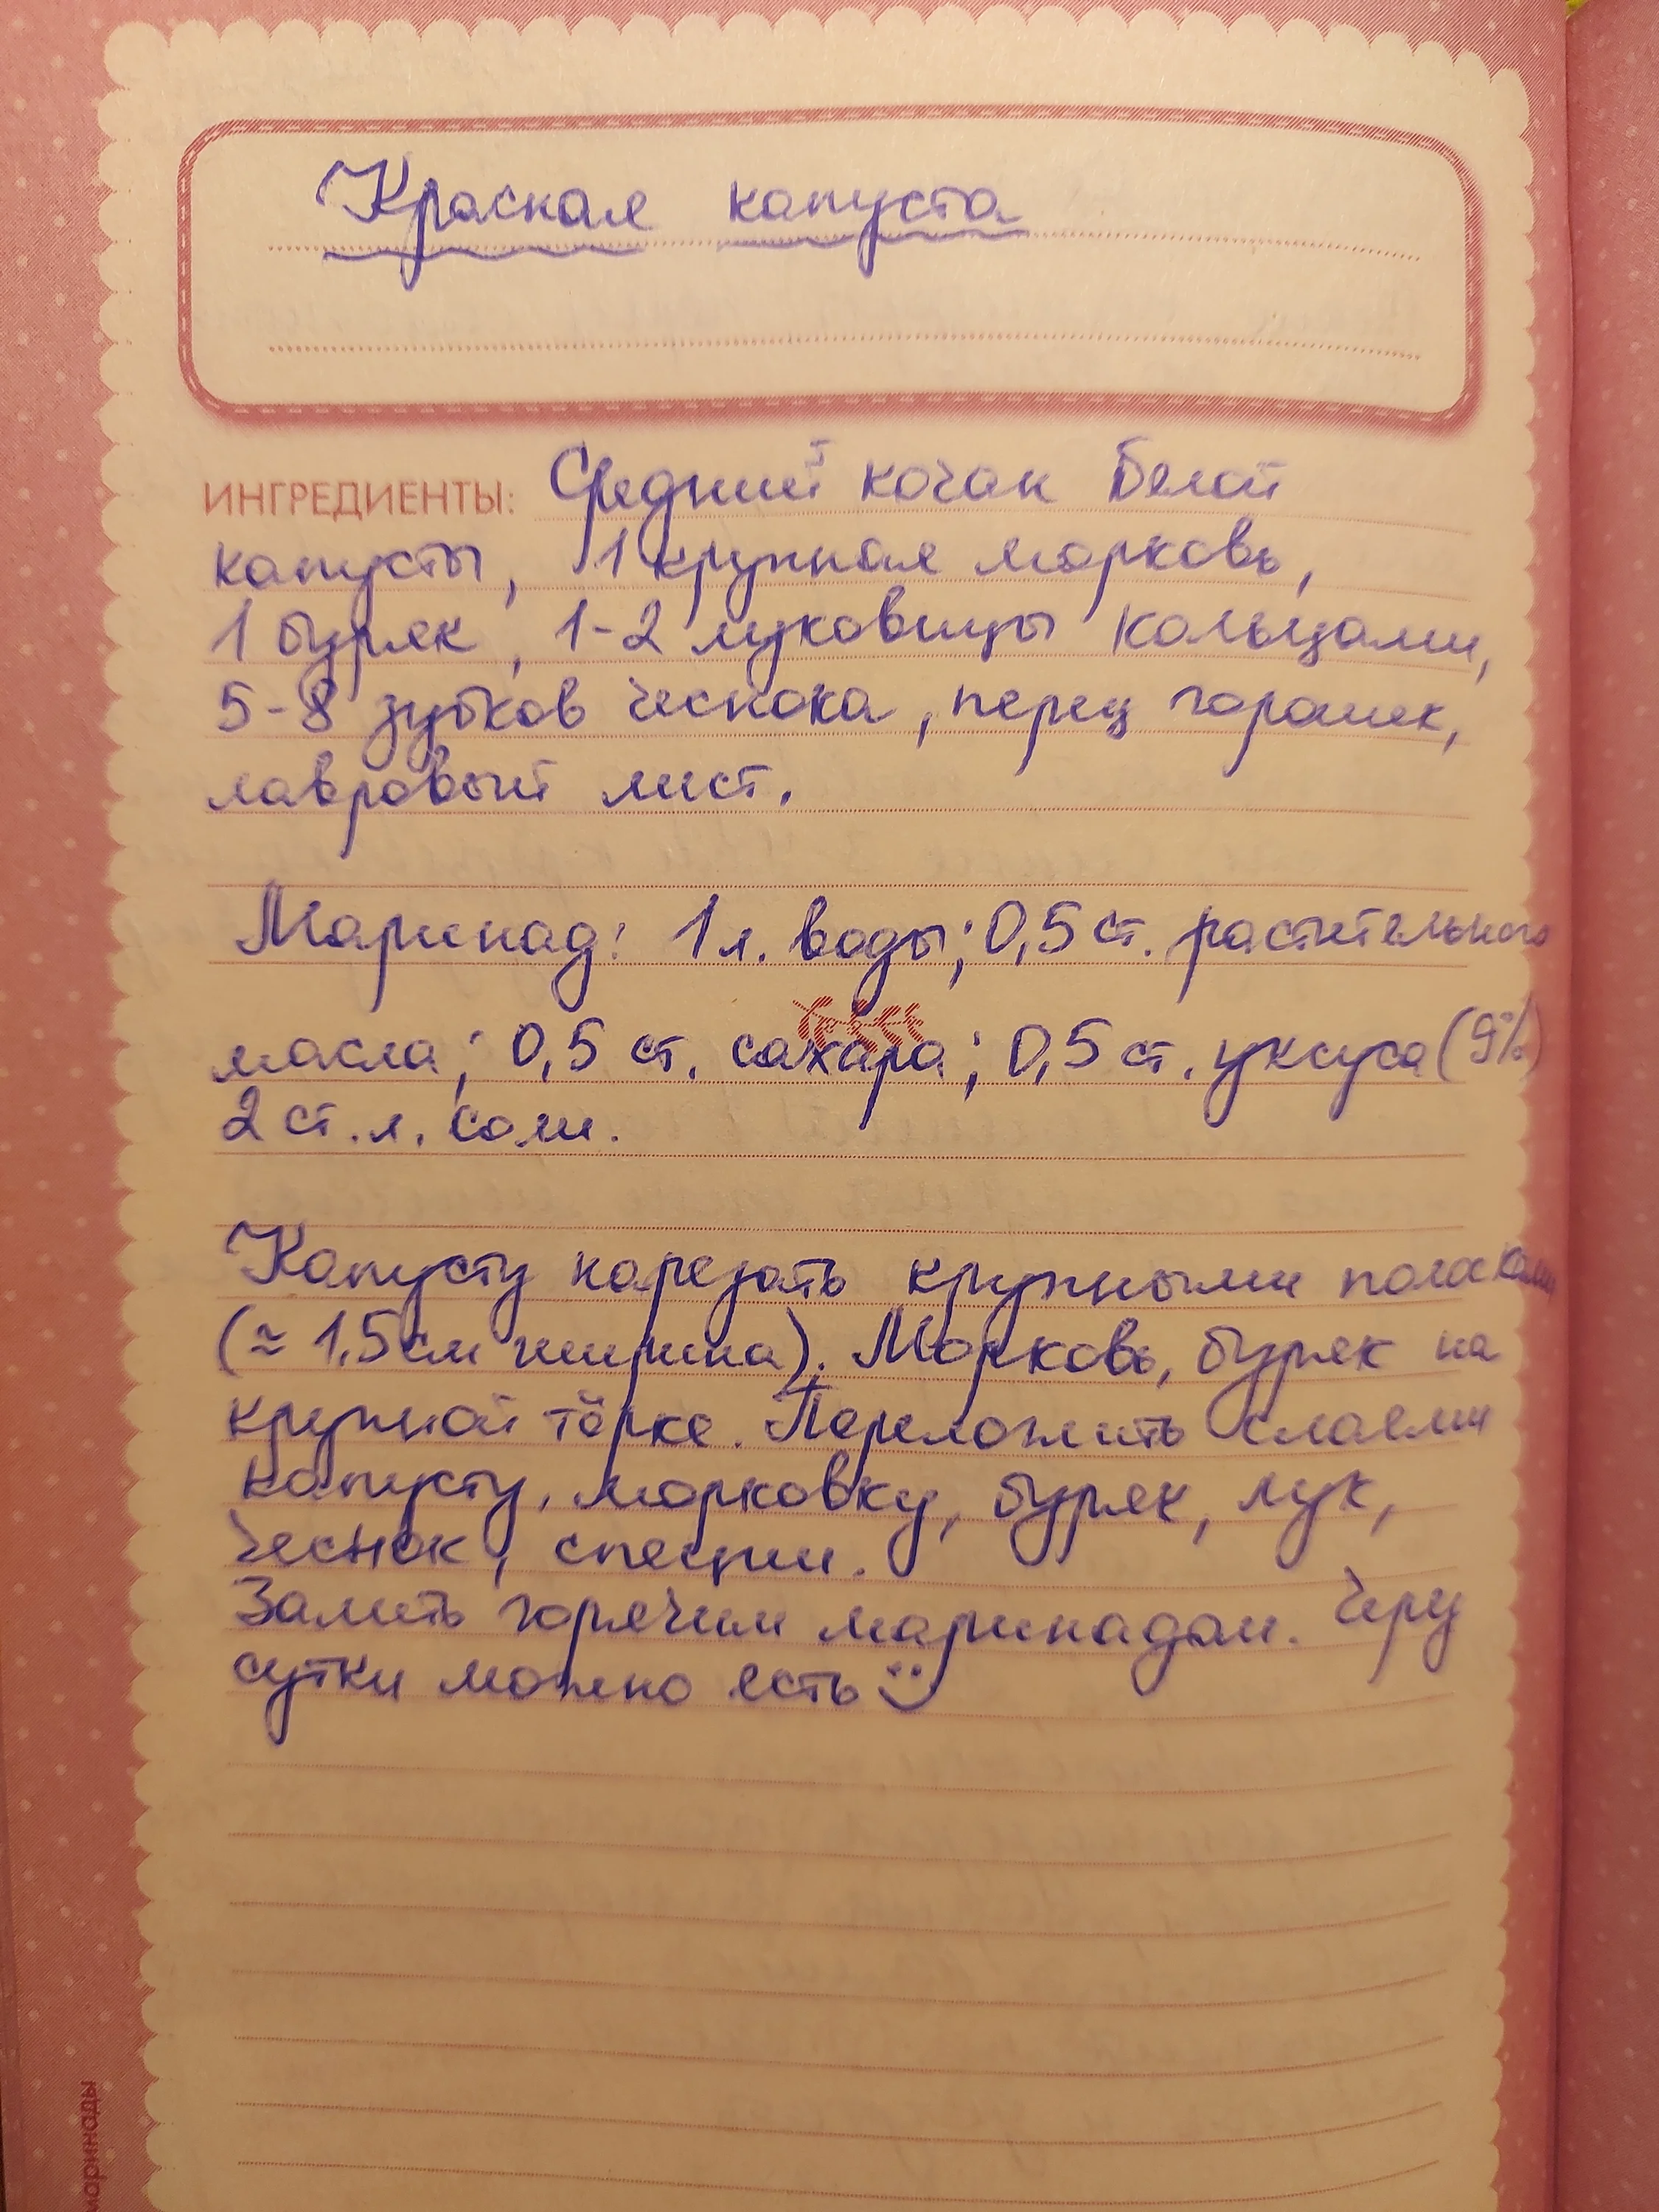 Красная капуста
ИНГРЕДИЕНТЫ: Средний кочан белой
капусты, 1 крупная морковь,
1 буряк, 1-2 луковицы кольцами,
5-8 зубков чеснока, перец горошек,
лавровый лист.
Маринад: 1 л. воды; 0,5 ст. растительного
масла; 0,5 ст. сахара; 0,5 ст. уксуса (9%)
2 ст. л. соли.
Капусту нарезать крупными полосками
(≈ 1,5 см ширина). Морковь, буряк на
крупной тёрке. Переложить слоями
капусту, морковку, буряк, лук,
чеснок, специи.
Залить горячим маринадом. Черу
сутки можно есть
маринады